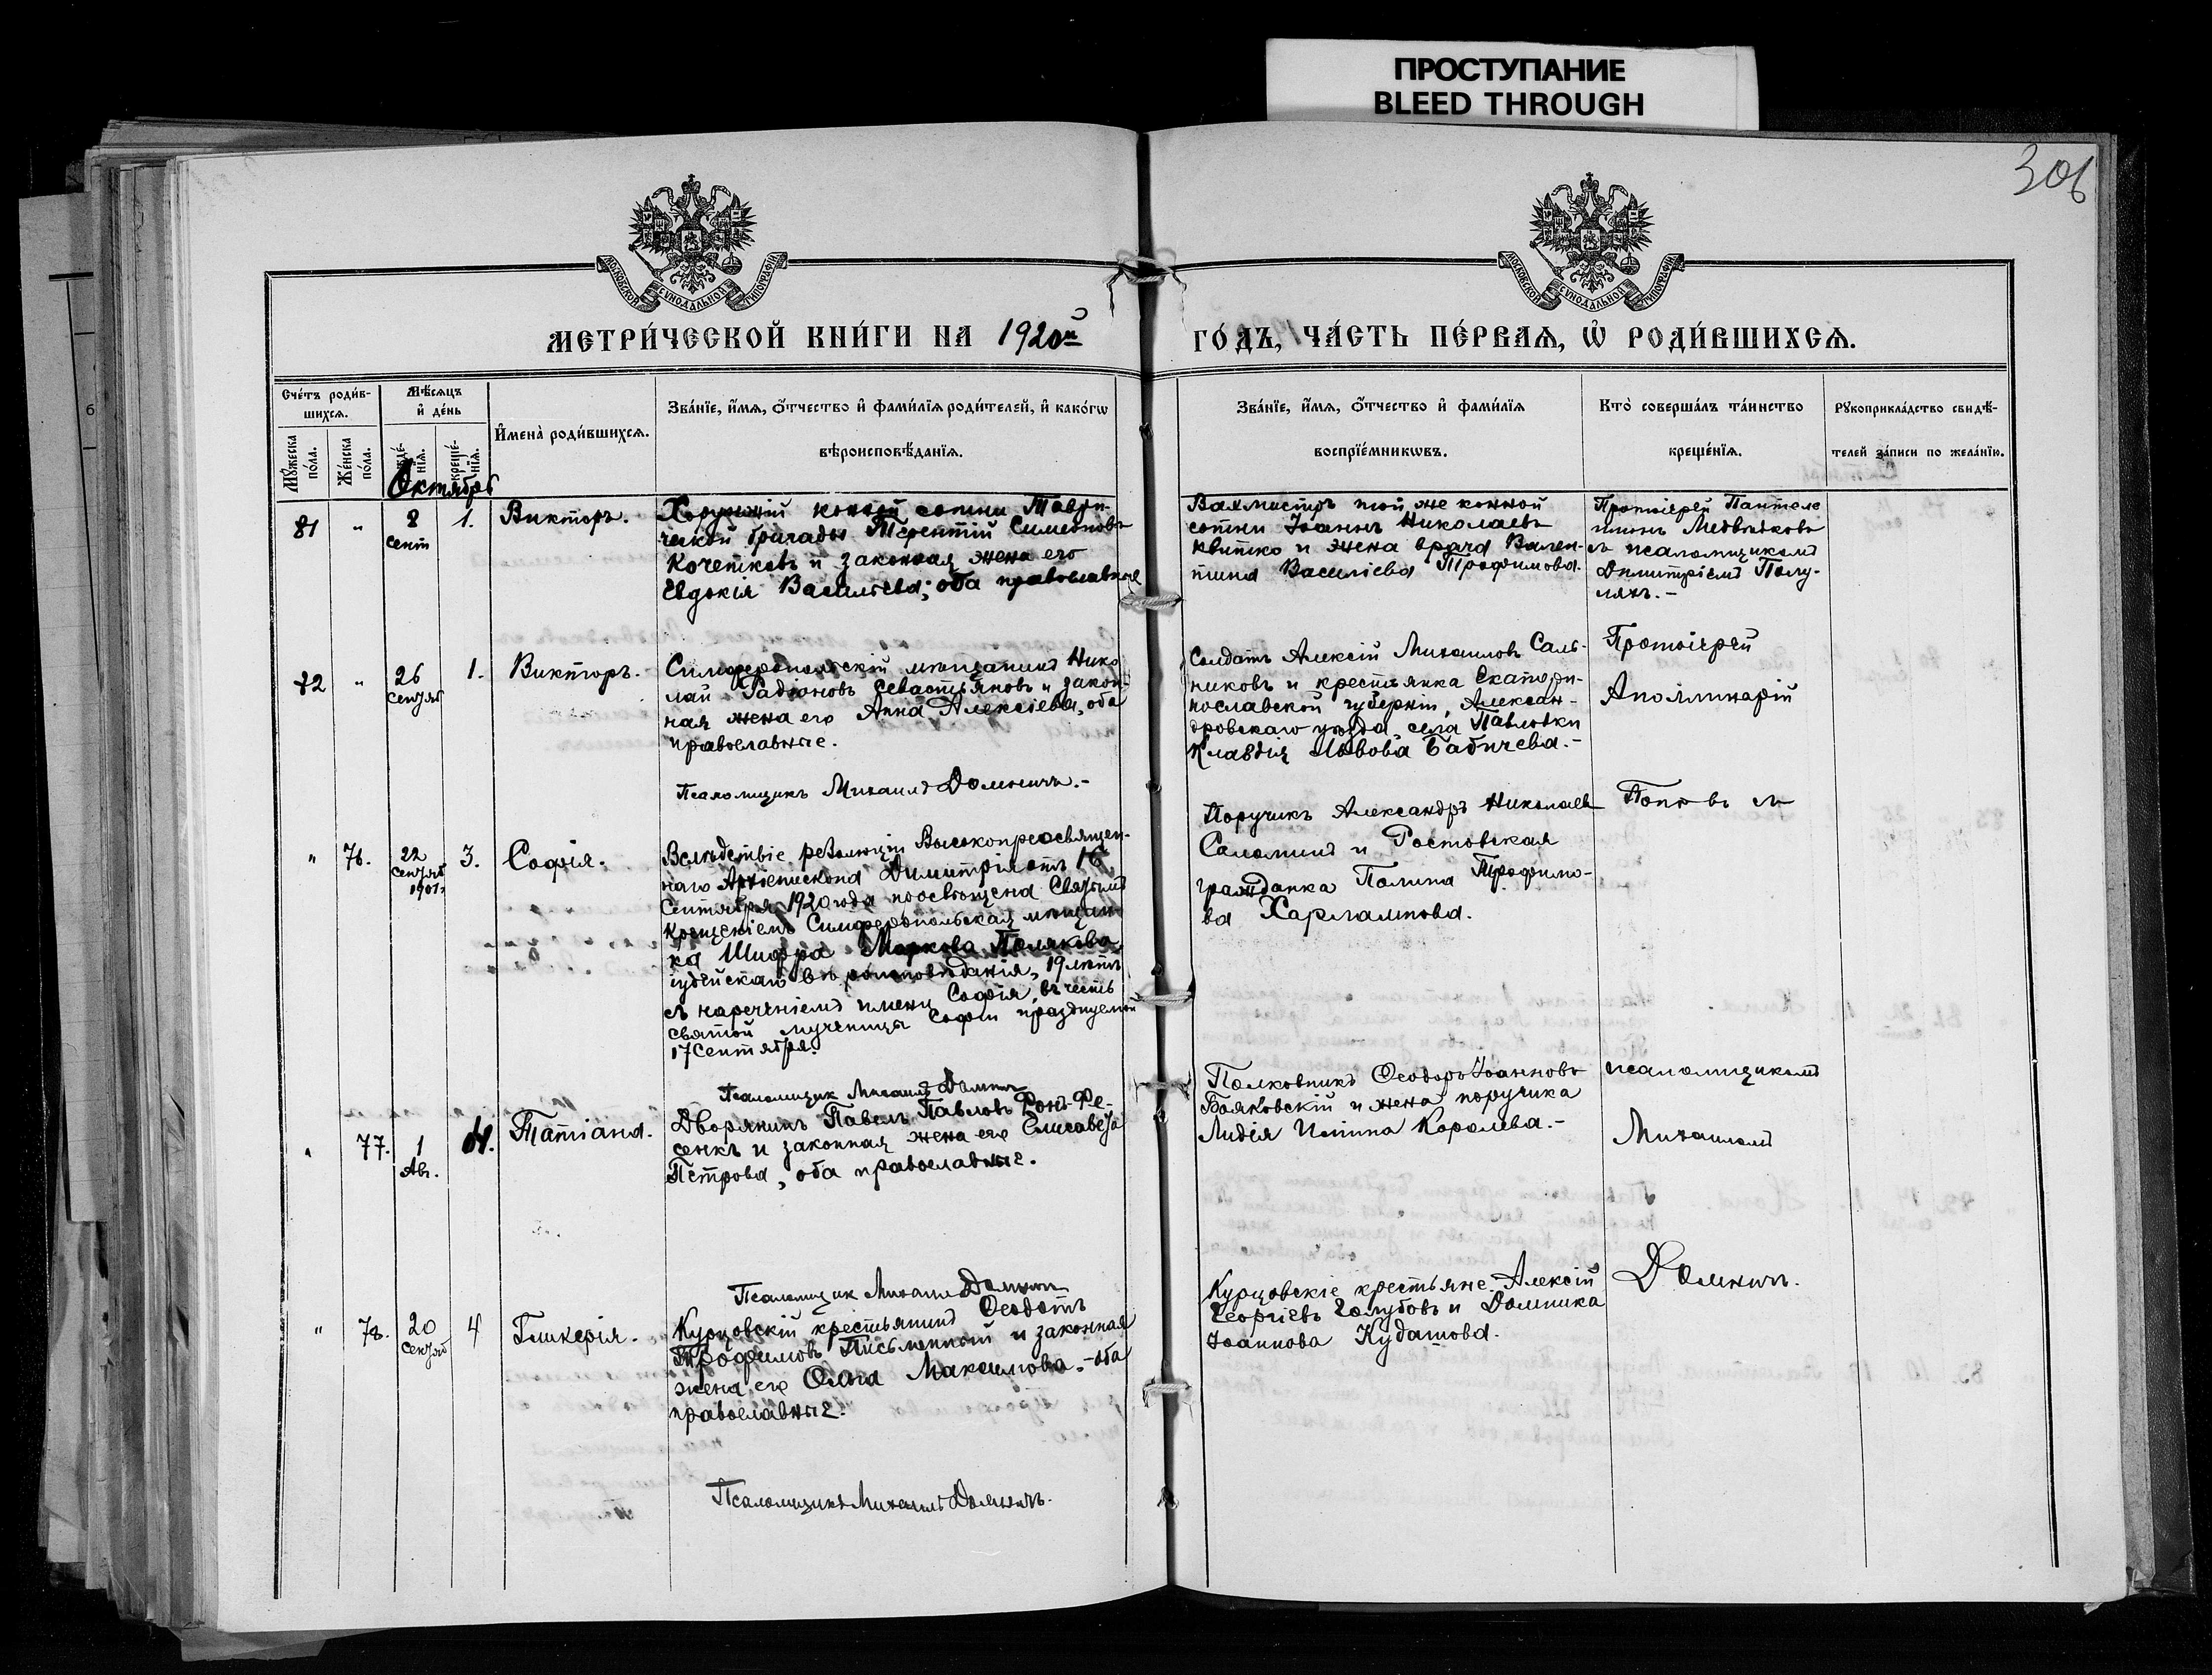 ПРОСТУПАНИЕ
BLEED THROUGH
306
МОСКОВСКОЙ СУНОДАЛЬНОЙ ТИПОГРАФІИ
МОСКОВСКОЙ СУНОДАЛЬНОЙ ТИПОГРАФІИ
МЕТРИ́ЧЕСКОЙ КНИ́ГИ НА 1920й
ГО́ДЪ, ЧА́СТЬ ПЕ́РВАѦ, Ѡ҆ РОДИ́ВШИХСѦ.
Сче́тъ роди́в-
шихсѧ.
Мꙋ́жеска по́ла.
Же́нска по́ла.
Мѣ́сѧцъ
и҆ де́нь
креще́-
нїѧ.
Октябрь
И҆мена̀ роди́вшихсѧ.
Зва́нїе, и҆́мѧ, ѻ҆́тчество и҆ фами́лїѧ роди́телей, и҆ како́гѡ
вѣроисповѣ́данїѧ.
Зва́нїе, и҆́мѧ, ѻ҆́тчество и҆ фами́лїѧ
воспрїе́мникѡвъ.
Кто̀ соверша́лъ та́инство
креще́нїѧ.
Рꙋкоприкла́дство свидѣ́-
телей за́писи по жела́нїю.
81 " 8 сент 1. Викторъ.
Хорунжій конной сотни Таври-
ческой бригады Терентій Симеоновъ
Кочетковъ и законная жена его
Евдокія Васильева; оба православные
Вахмистръ той же конной
сотни Іоаннъ Николаевъ
Квитко и жена врача Вален-
тина Васильева Трофимова.
Протоіерей Пантеле
имонъ Медвѣдковъ
съ псаломщикомъ
Димитріемъ Полу-
ляхъ.-
82 " 26 Сентяб 1. Викторъ.
Симферопольскій мѣщанинъ Нико
лай Радіоновъ Севастьяновъ и закон-
ная жена его Анна Алексіева, оба
православные.
Псаломщикъ Михаилъ Домничъ.-
Солдатъ Алексій Михаиловъ Саль-
никовъ и крестьянка Екатери-
нославской губерніи, Алексан-
дровскаго уѣзда, села Павловки
Клавдія Львова Бабичева.-
Протоіерей
Аполлинарій
" 76. 22 Сентяб 1901г 3. Софія.
Вслѣдствіе резолюціи Высокопреосвящен-
наго Архіепископа Димитрія отъ 16
Сентября 1920 года просвѣщена Святымъ
Крещеніемъ Симферопольская мѣщан-
ка Шифра Маркова Полякова
іудейскаго вѣроисповѣданія, 19 лѣтъ
съ нареченіемъ имени Софія, въ честь
святой мученицы Софіи празднуемой
17 Сентября.
Псаломщик Михаилъ Домнич
Поручикъ Александръ Николаевъ
Саломинъ и Ростовская
гражданка Полина Трофимо-
ва Харлампова.
Поповъ съ
" 77. 1 Авг. 4. Татіана.
Дворянинъ Павелъ Павловъ Фонъ-Ре-
сенкъ и законная жена его Елисавета
Петрова, оба православные.
Псаломщик Михаилъ Домнич
Полковникъ Ѳеодоръ Іоанновъ
Бояковскій и жена поручика
Лидія Ильина Королева.-
псаломщикомъ
Михаиломъ
" 78. 20 Сентяб 4 Гликерія.
Курцовскій крестьянинъ Ѳеодотъ
Трофимовъ Письменный и законная
жена его Ольга Максимова.- оба
православные.
Псаломщикъ Михаилъ Домничъ.
Курцовскіе крестьяне Алексій
Георгіевъ Голубовъ и Домника
Іоаннова Кудашова.
Домничъ.